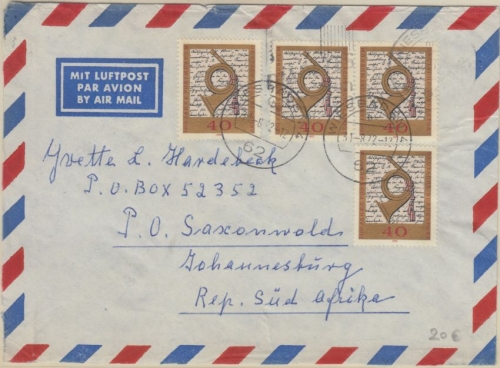 MIT LUFTPOST
PAR AVION
BY AIR MAIL
40 40 40
40
62
Yvette L. Hardebeck
P.O. BOX 52352
P.O. Saxonwold
Johannesburg
Rep. Süd Afrika
20€